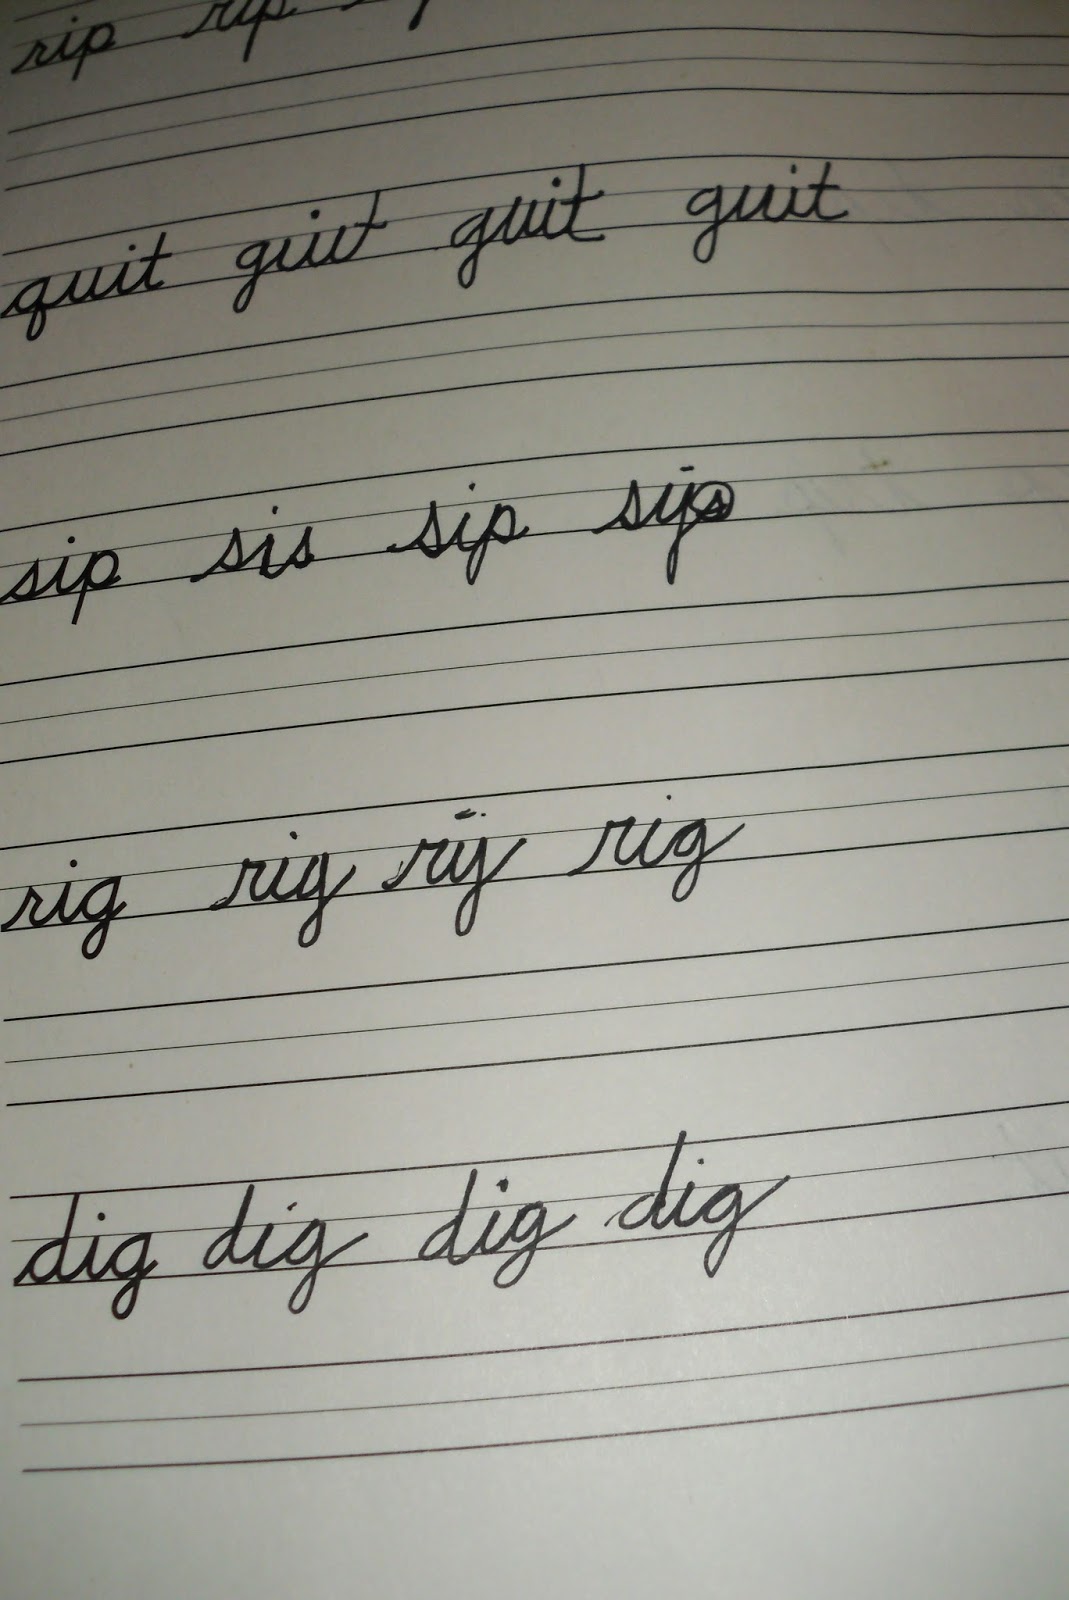 rip rip
quit guit guit guit
sip sis sip
rig rig rij rig
dig dig dig dig